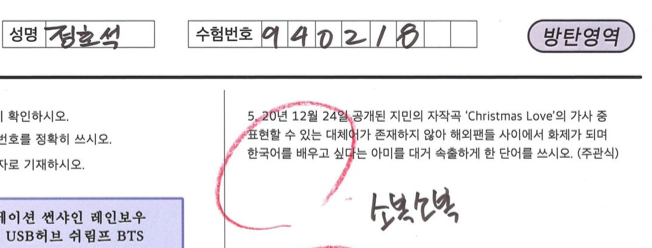 성명 정호석 수험번호 940218 방탄영역
확인하시오.
번호를 정확히 쓰시오.
자로 기재하시오.
네이션 썬샤인 레인보우
USB허브 쉬림프 BTS
5. 20년 12월 24일 공개된 지민의 자작곡 ‘Christmas Love’의 가사 중
표현할 수 있는 대체어가 존재하지 않아 해외팬들 사이에서 화제가 되며
한국어를 배우고 싶다는 아미를 대거 속출하게 한 단어를 쓰시오. (주관식)
소복소복